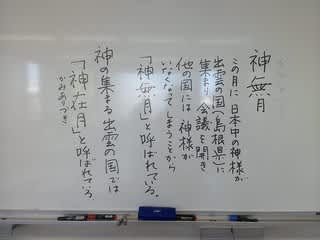 神無月
この月に日本中の神様が
出雲の国(島根県)に
集まり会議を開き
他の国には神様が
いなくなってしまうことから
「神無月」と呼ばれている。
神の集まる出雲の国では
「神在月」と呼ばれている。
かみありづき